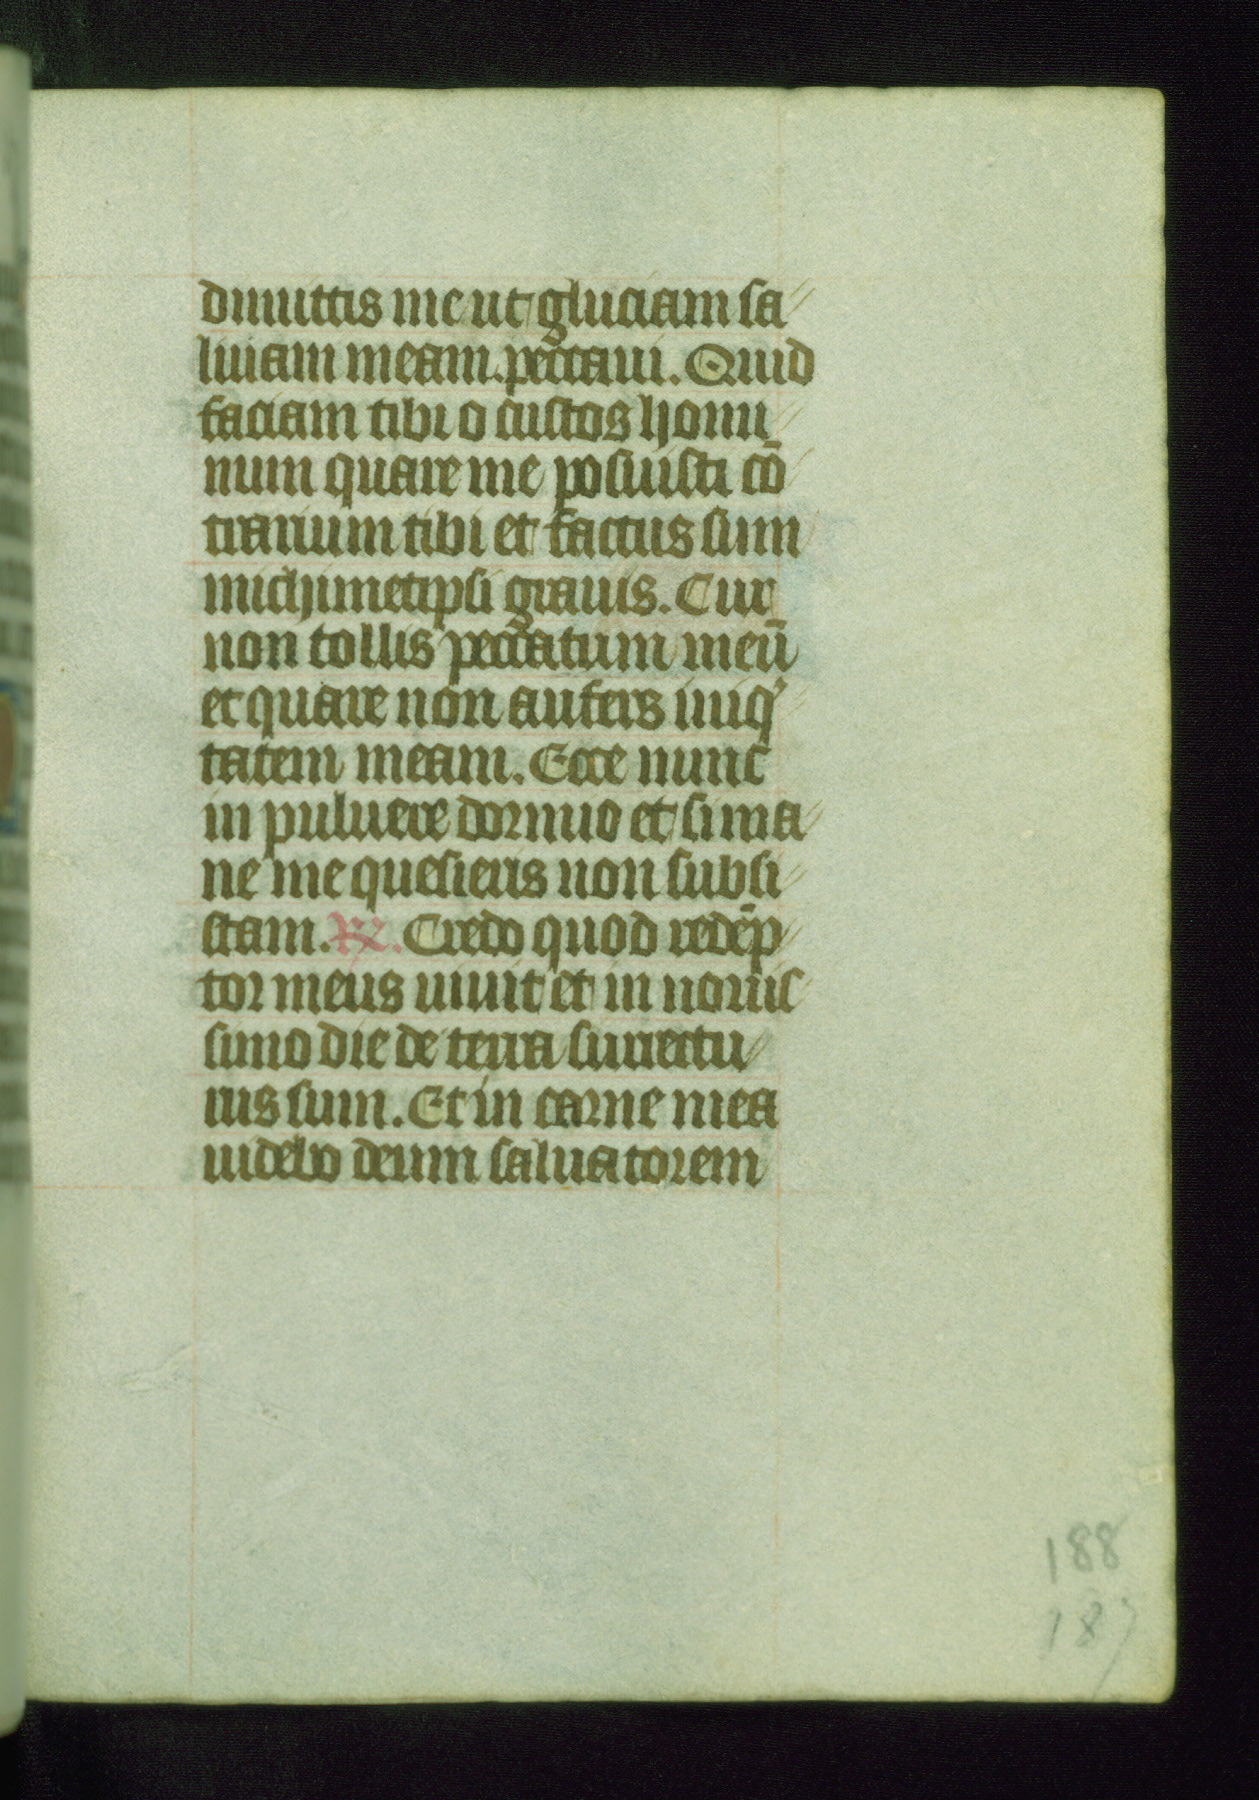 dimittis me ut gluciam sa
liuam meam. peccaui. Quid
faciam tibi o custos homi
num quare me posuisti cō
trarium tibi et factus sum
michimetipsi grauis. Cur
non tollis peccatum meū
et quare non aufers iniqͥ
tatem meam. Ecce nunc
in puluere dormio et si ma
ne me quesieris non subsi
stam. ℟. Credo quod redēp
tor meus uiuit et in nouis
simo die de terra surrectu
rus sum. Et in carne mea
uidebo deum saluatorem
188
187